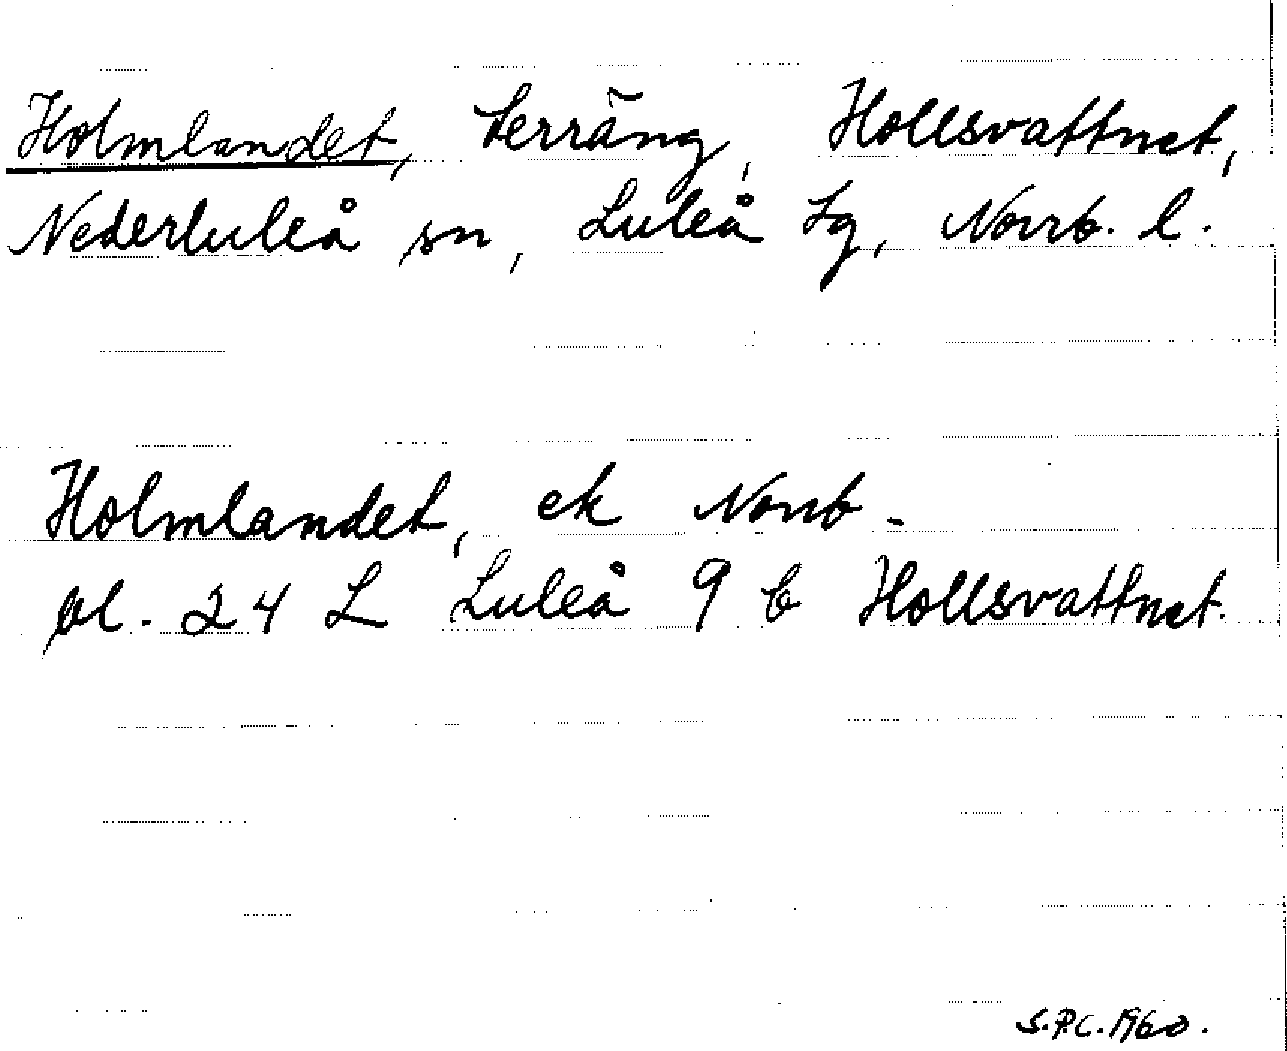 Holmlandet, terräng, Hollsvattnet,
Nederluleå sn, Luleå tg, Norrb. l.
Holmlandet, ek Norrb -
bl. 24 L Luleå 9 b Hollsvattnet.
S.P.C. 1960.